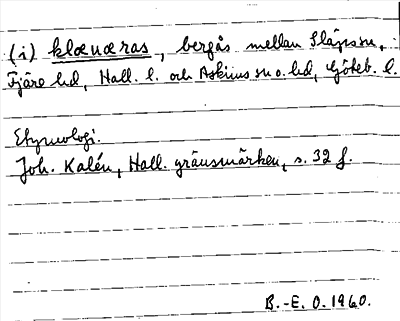 (i) klœnœras, bergås mellan Släps sn,
Fjäre hd, Hall. l. och Askims sn o. hd, Göteb. l.
Etymologi.
Joh. Kalén, Hall. gränsmärken, s. 32 f.
B.-E. O. 1960.